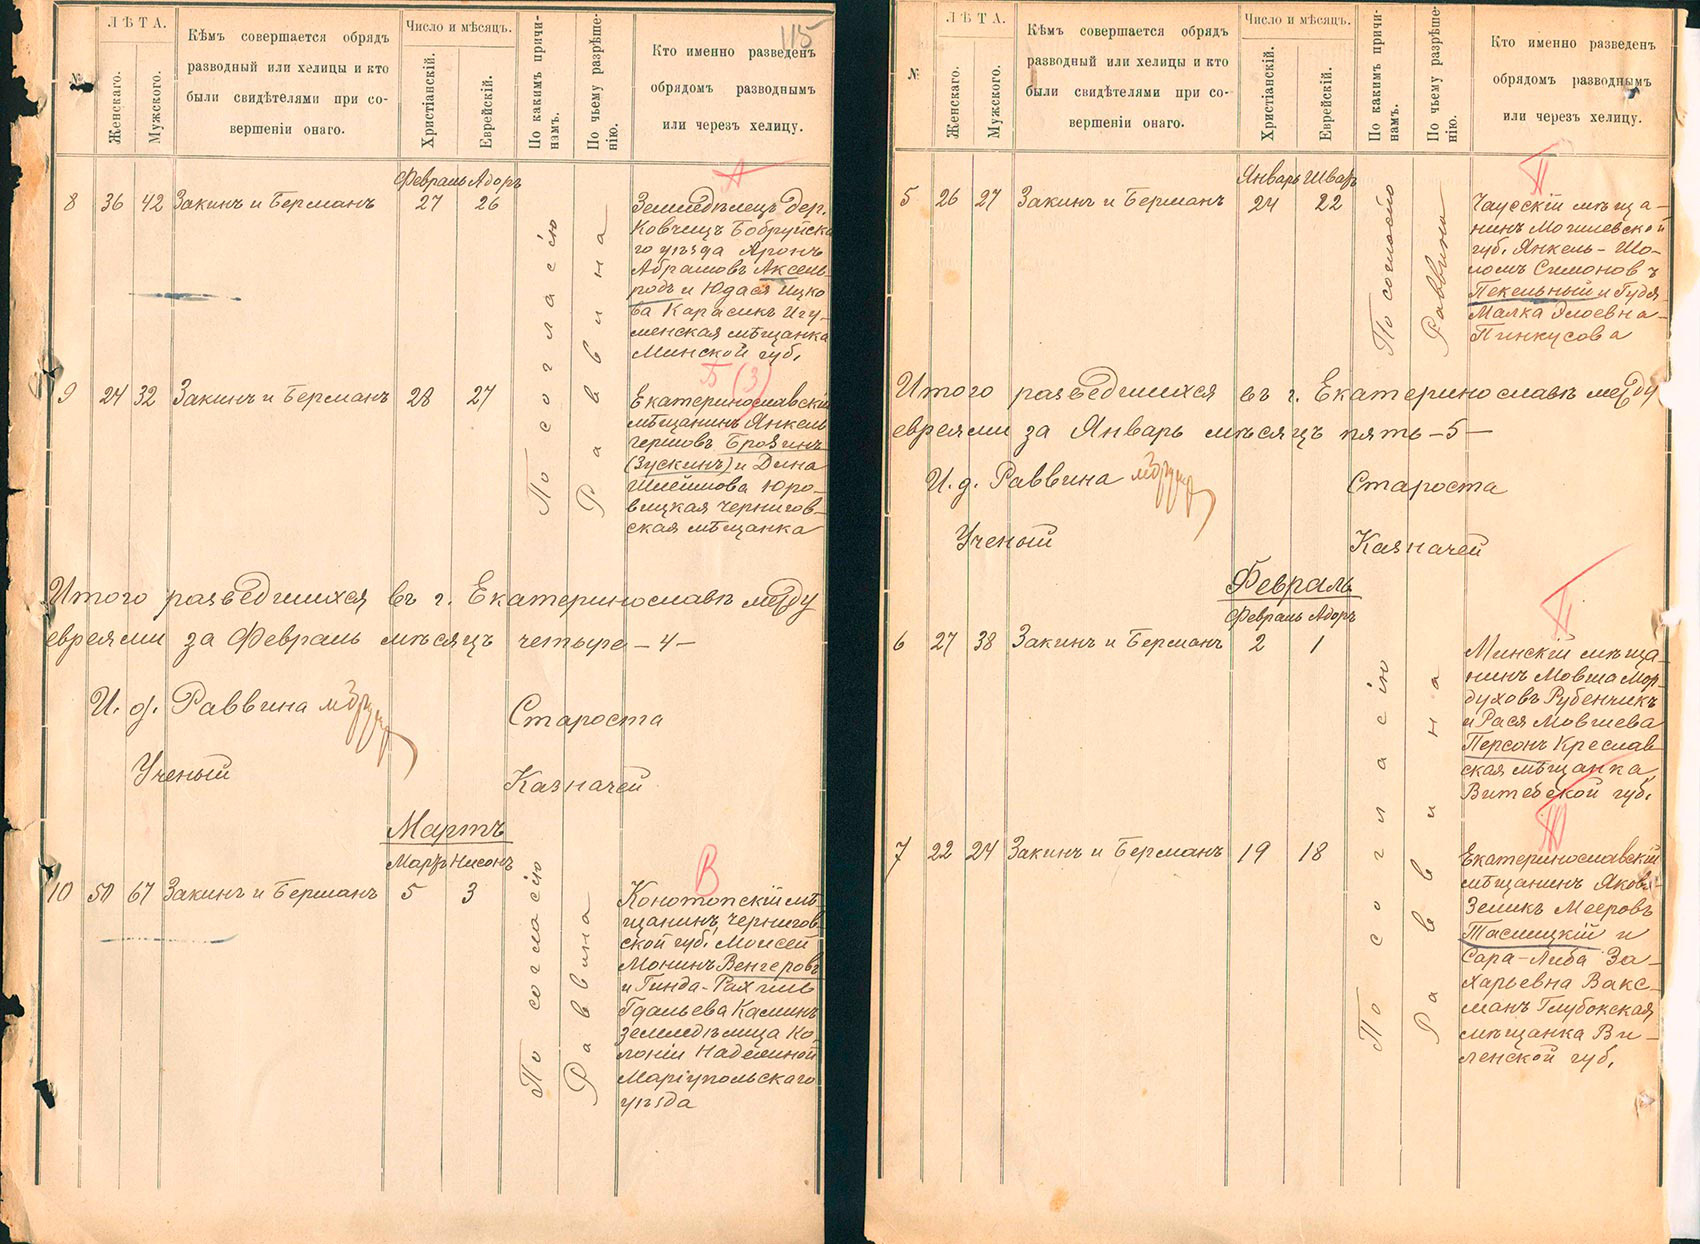 115
№
ЛѢТА.
Женскаго.
Мужского.
Кѣмъ совершается обрядъ
разводный или хелицы и кто
были свидѣтелями при со-
вершеніи онаго.
Число и мѣсяцъ.
Христіанскій.
Еврейскій.
По какимъ причи-
намъ.
По чьему разрѣше-
нію.
Кто именно разведенъ
обрядомъ разводнымъ
или черезъ хелицу.
А
Февраль Адоръ
8 36 42 Закинъ и Берманъ 27 26
По согласію
Раввина
Земледѣлецъ дер.
Ковчицъ Бобруйска
го уѣзда Аронъ
Абрамовъ Аксель
родъ и Юдася Ицко
ва Карасикъ Игу-
менская мѣщанка
Минской губ.
Б (З)
9 24 32 Закинъ и Берманъ 28 27
Екатеринославскій
мѣщанинъ Янкель
Гершовъ Брозинъ
(Зускинъ) и Дина
Шлеймова Юро-
вицкая Чернигов-
ская мѣщанка
Итого разведшихся въ г. Екатеринославѣ между
евреями за Февраль мѣсяцъ четыре - 4 -
И. д. Раввина
Староста
Ученый
Казначей
Мартъ
Мартъ Нисонъ
В
10 50 67 Закинъ и Берманъ 5 3
По согласію
Раввина
Конотопскій мѣ-
щанинъ, Чернигов-
ской губ. Моисей
Монинъ Венгеровъ
и Гинда-Рахиль
Гдальева Каминъ
земледѣлица Ко-
лоніи Надежной
Маріупольскаго
уѣзда
№
ЛѢТА.
Женскаго.
Мужского.
Кѣмъ совершается обрядъ
разводный или хелицы и кто
были свидѣтелями при со-
вершеніи онаго.
Число и мѣсяцъ.
Христіанскій.
Еврейскій.
По какимъ причи-
намъ.
По чьему разрѣше-
нію.
Кто именно разведенъ
обрядомъ разводнымъ
или черезъ хелицу.
П
Январь Шватъ
5 26 27 Закинъ и Берманъ 24 22
По согласію
Раввина
Чаусскій мѣща-
нинъ Могилевской
губ. Янкель-Шо-
ломъ Симоновъ
Пекельный и Гудя
Малка Элоевна
Пинкусова
Итого разведшихся въ г. Екатеринославѣ между
евреями за Январь мѣсяцъ пять - 5 -
И. д. Раввина
Староста
Ученый
Казначей
Февраль
Февраль Адоръ
6 27 38 Закинъ и Берманъ 2 1
По согласію
Раввина
Минскій мѣща-
нинъ Мовша Мор-
духовъ Рубенчикъ
и Рася Мовшева
Персонъ Креслав
ская мѣщанка
Витебской губ.
7 22 24 Закинъ и Берманъ 19 18
Екатеринославскій
мѣщанинъ Яковъ-
Земикъ Мееровъ
Тасмицкій и
Сара-Либа За-
харьевна Вакс-
манъ Глубокская
мѣщанка Ви-
ленской губ.